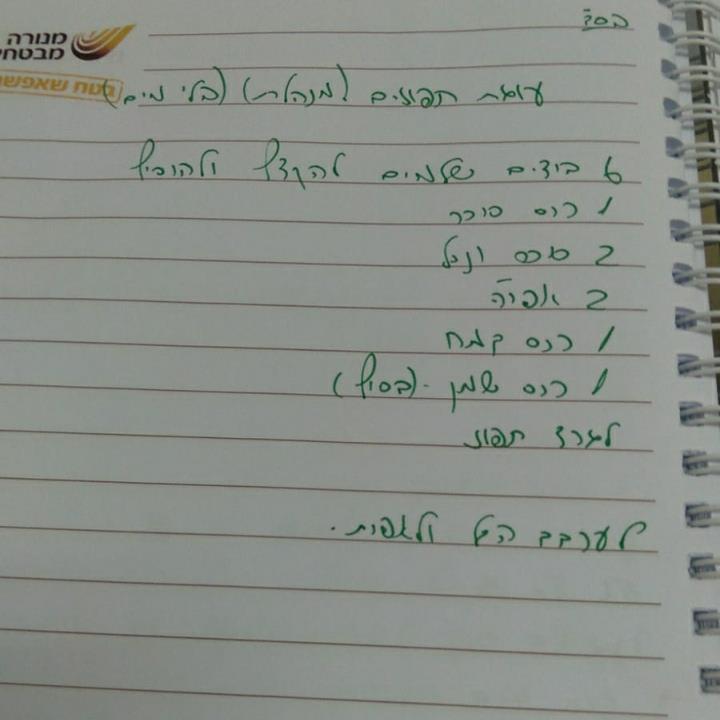 בסד
מנורה
מבטחי
בטח שאפש
עוגת תפוזים (מנהלת) (בלי מים)
6 ביצים שלמים להקציף ולהוסיף
1 כוס סוכר
2 סוכר וניל
2 אפיה
1 כוס קמח
1 כוס שמן - (בסוף)
לגרד תפוז
לערבב הכל ולאפות.